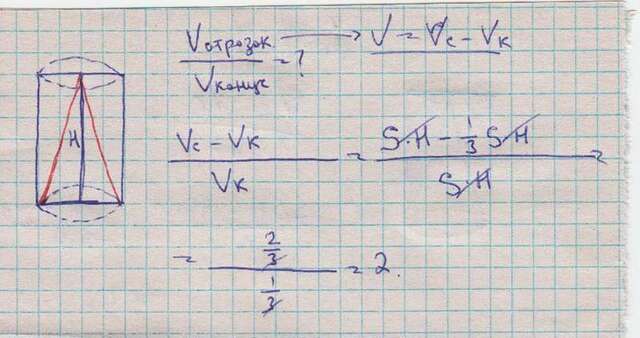 Vотрезок / Vконус = ? → V = Vc - Vк
H
(Vc - Vк) / Vк = (S·H - 1/3 SH) / (S·H) =
= (2/3) / (1/3) = 2.